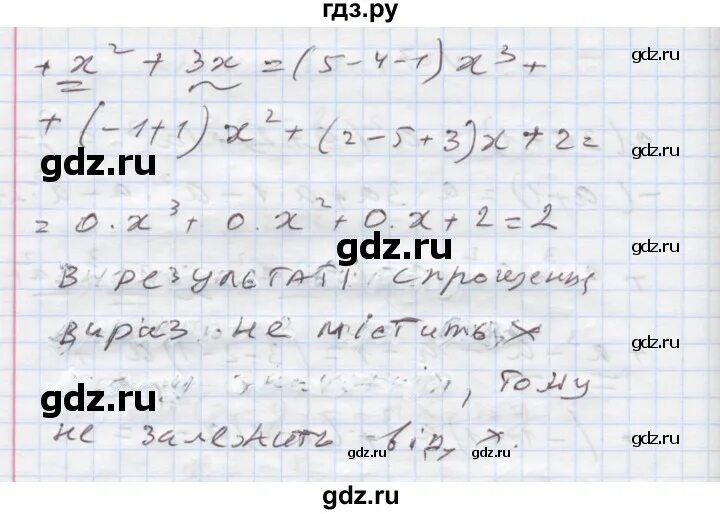 гдз.ру
+ x² + 3x = (5-4-1)x³ +
gdz.ru
gdz.ru
+ (-1+1)x² + (2-5+3)x + 2 =
gdz.ru
gdz.ru
= 0·x³ + 0·x² + 0·x + 2 = 2
gdz.ru
gdz.ru
В результаті спрощення
вираз не містить x
gdz.ru
gdz.ru
, тому
не залежить від x.
gdz.ru
gdz.ru
gdz.ru